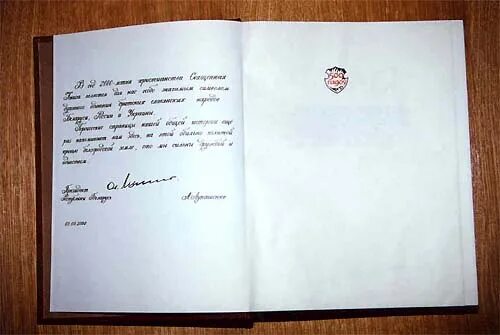 В год 2000-летия христианства Священная
Книга является для нас особо значимым символом
духовного единения братских славянских народов
Беларуси, России и Украины.
Героические страницы нашей общей истории еще
раз напоминают нам здесь, на этой обильно политой
кровью белгородской земле, что мы сильны дружбой и
единством.
Президент
Республики Беларусь А.Лукашенко
03.05.2000
500